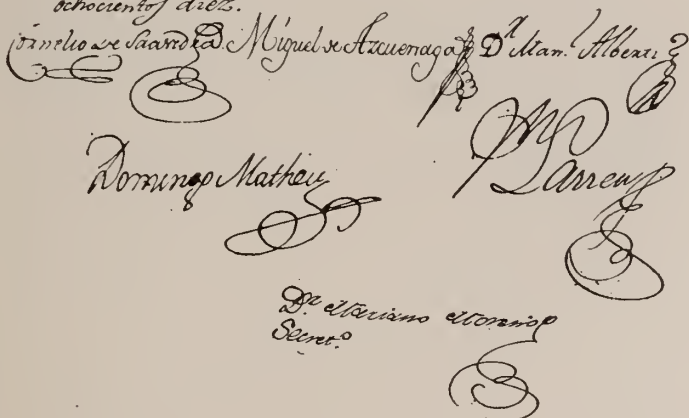 ochocientos diez.
Cornelio de Saavedra. Miguel de Azcuenaga Dr Man.l Alberti
Domingo Matheu
Larrea
Dr. Mariano Moreno
Secret.o